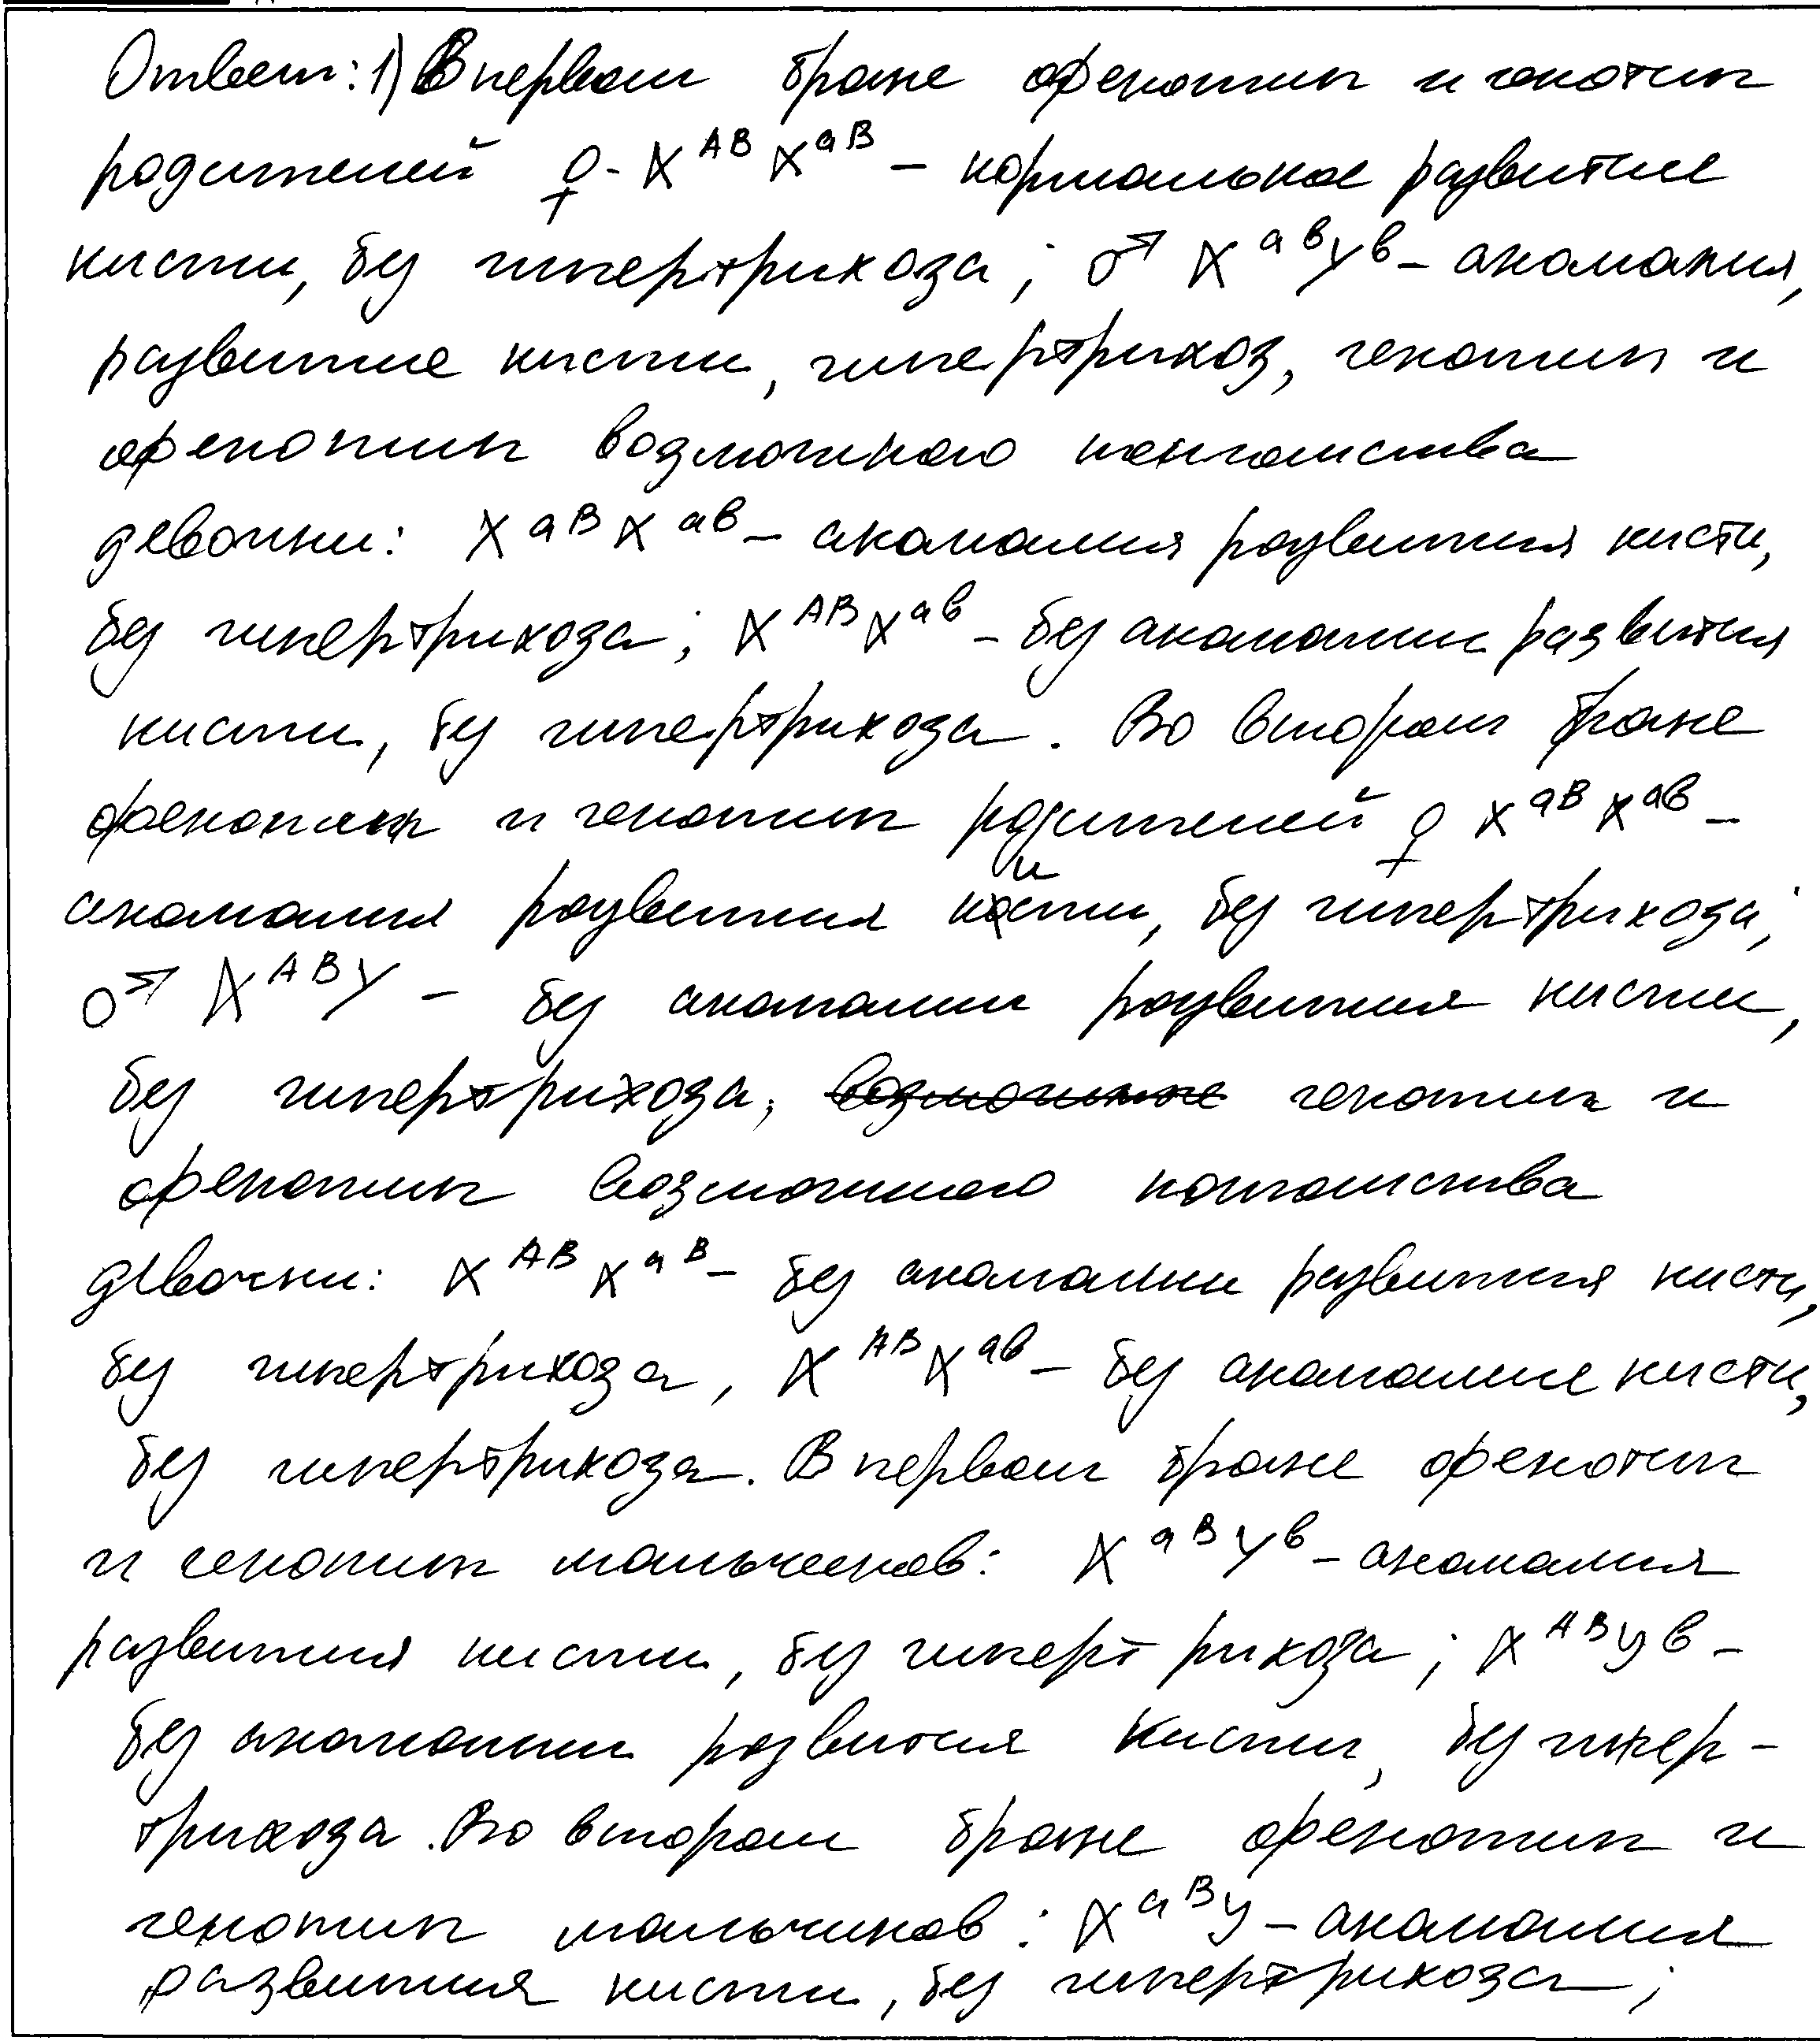 Ответ: 1) В первом браке фенотип и генотип
родителей ♀ - X^AB X^aB – нормальное развитие
кисти, без гипертрихоза; ♂ X^aв Y^в – аномалия,
развитие кисти, гипертрихоз, генотип и
фенотип возможного потомства
девочки: X^aB X^aв – аномалия развития кисти,
без гипертрихоза; X^AB X^aв – без аномалии развития
кисти, без гипертрихоза. Во втором браке
фенотип и генотип родителей ♀ X^aB X^aв –
аномалия развития кисти, без гипертрихоза;
♂ X^AB Y – без аномалии развития кисти,
без гипертрихоза; возможные генотип и
фенотип возможного потомства
девочки: X^AB X^aB – без аномалии развития кисти,
без гипертрихоза, X^AB X^aв – без аномалие кисти,
без гипертрихоза. В первом браке фенотип
и генотип мальчиков: X^aB Y^в – аномалия
развития кисти, без гиперт рихоза; X^AB Y^в –
без аномалии развития кисти, без гипер-
трихоза. Во втором браке фенотип и
генотип мальчиков: X^aB Y – аномалия
развития кисти, без гипертрихоза;